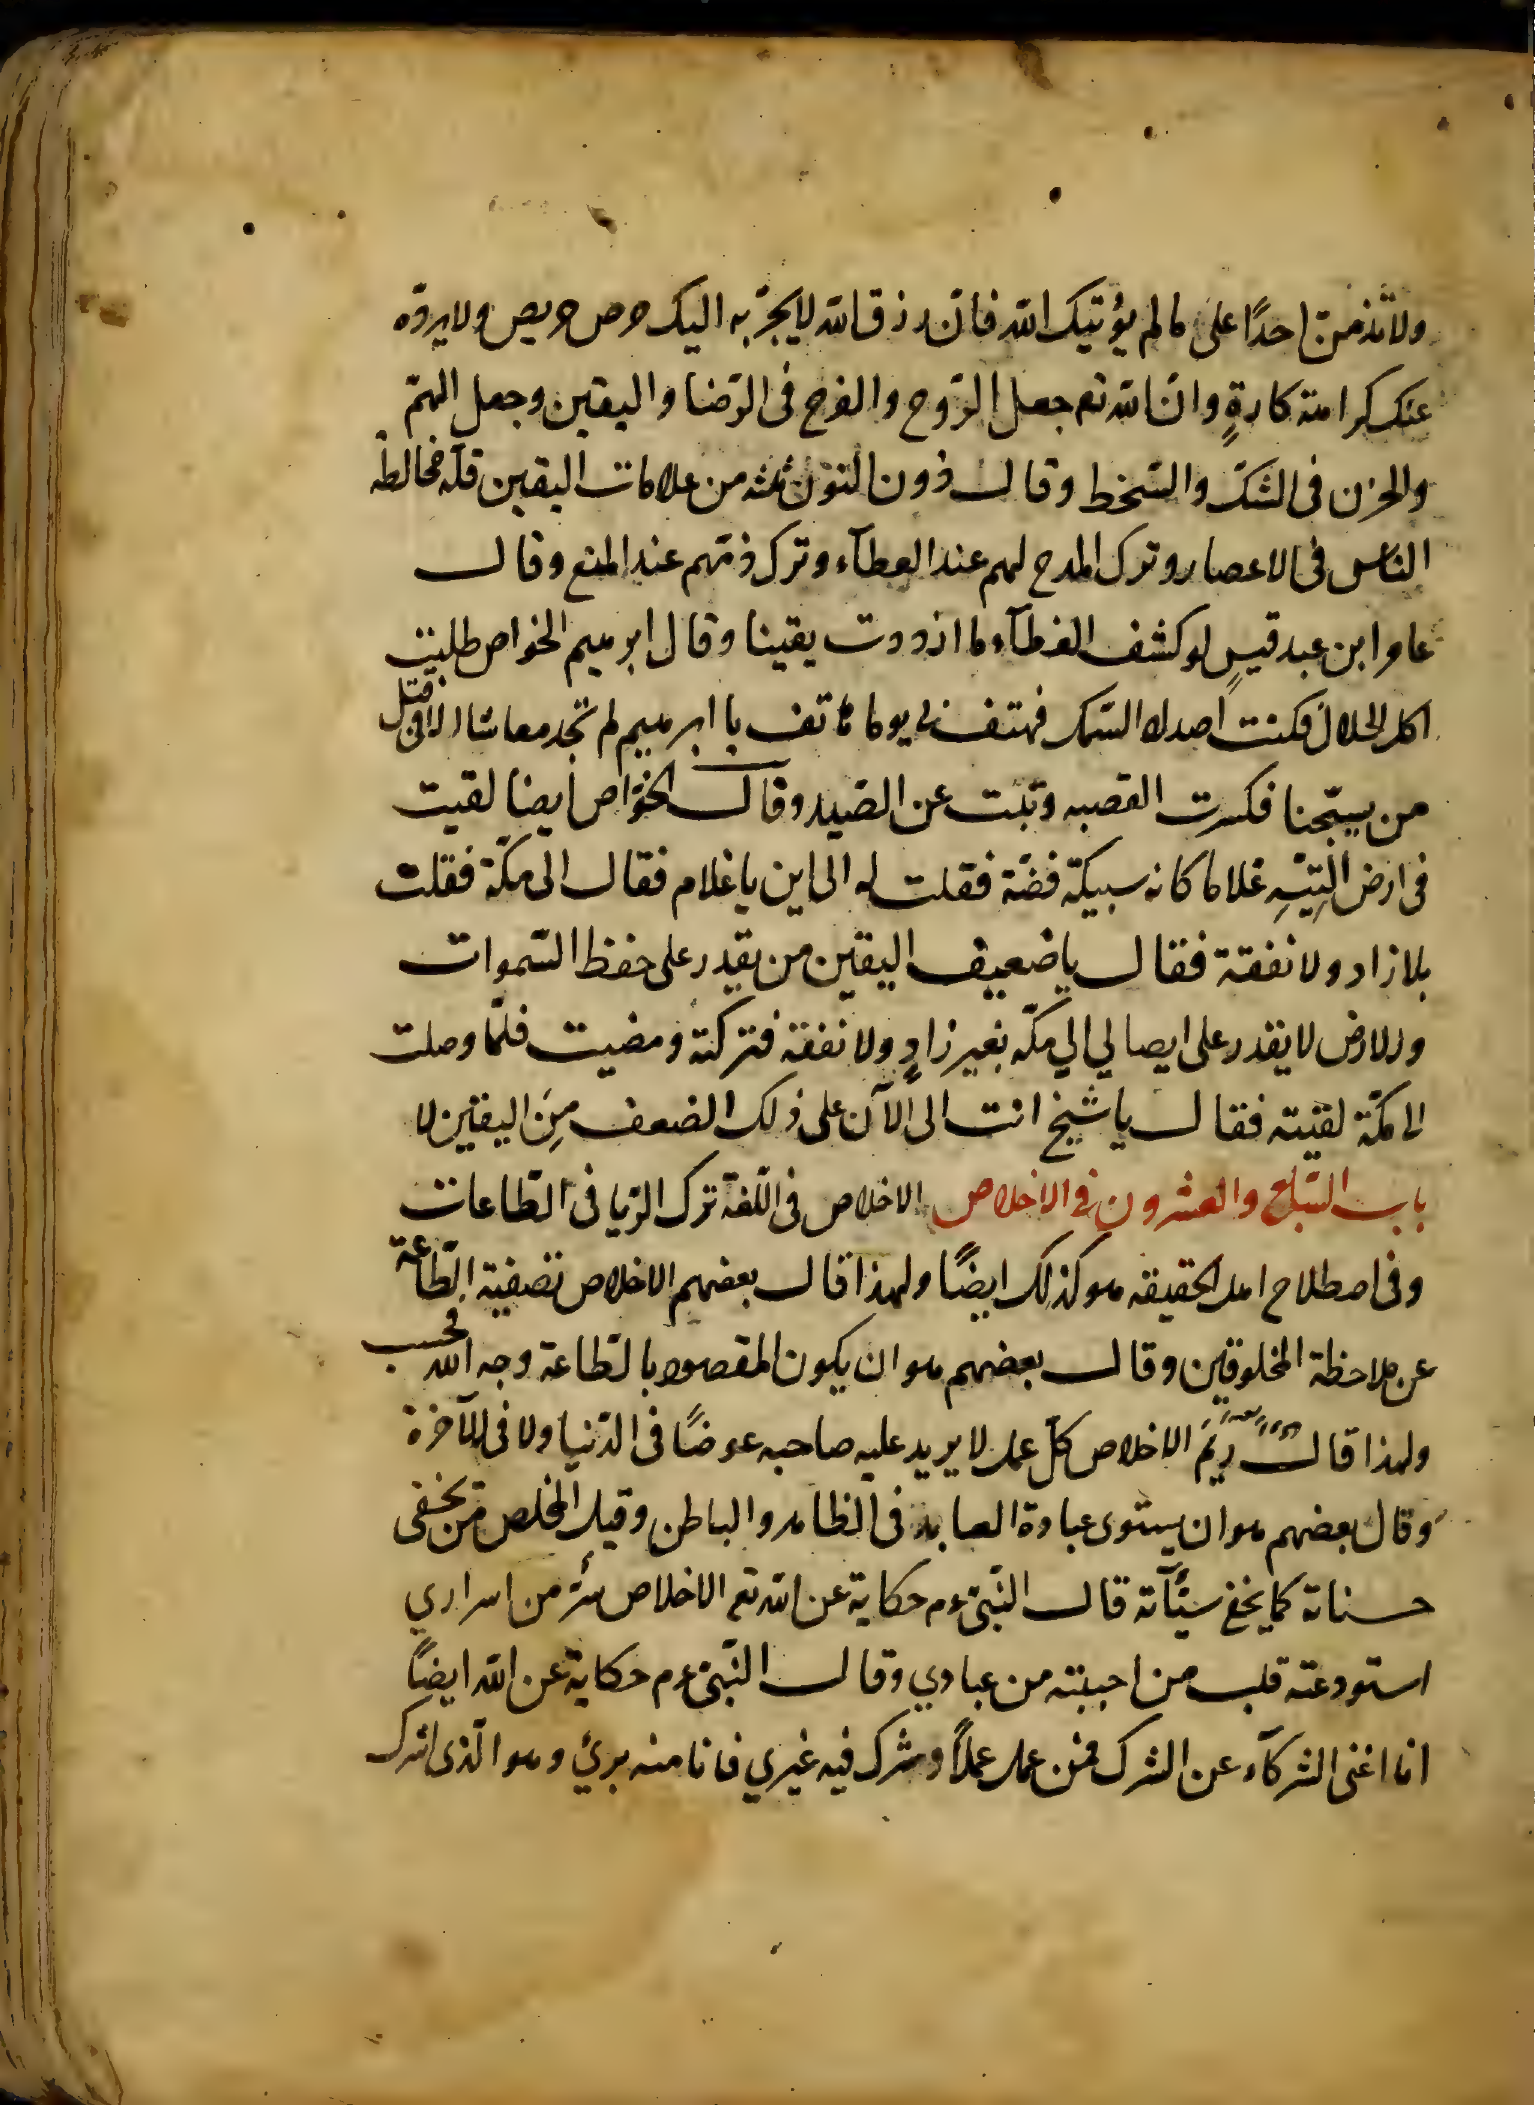 ولا تذمن احدًا على مالم يؤتيك الله فان رزق الله لا يجرّ به اليك حرص حريص ولا يردّه
عنك كراهة كارهٍ وان الله تع جعل الرّوح والفرح فى الرّضا واليقين وجعل الهمّ
والحزن فى الشكّ والسّخط وقال ذون النّون ثلثه من علامات اليقين قلّه مخالطه
الناس فى الاعصار وترك المدح لهم عند العطآء وترك ذمّهم عند المنع وقال
عامر ابن عبد قيسٍ لو كشف الغطآء ما ازددت يقينا وقال ابرهيم الخواص طلبت
اكل الحلال فكنت اصيد السّمك فهتف بي يوما هاتف يا ابرهيم لم تجد معاشا الا فى قتل
من يسبّحنا فكسرت القصبه وتبت عن الصّيد وقال الخوّاص ايضا لقيت
فى ارض التِيْهِ غلاما كانه سبيكة فضّة فقلت له الى اين يا غلام فقال الى مكّة فقلت
بلا زاد ولا نفقة فقال يا ضعيف اليقين من يقدر على حفظ السّموات
والارض لا يقدر على ايصالي الي مكّه بغير زادٍ ولا نفقة فتركته ومضيت فلمّا وصلت
الى مكّة لقيته فقال يا شيخ انت الى الآن على ذلك الضعف مِنَ اليقين لا
باب السّابع والعشرون في الاخلاص الاخلاص فى اللّغة ترك الرّيا فى الطّاعات
وفى اصطلاح اهل الحقيقه هو كذلك ايضًا ولهذا قال بعضهم الاخلاص تصفية الطّاعة
عن ملاحظة المخلوقين وقال بعضهم هو ان يكون المقصود بالطّاعة وجه الله فحسب
ولهذا قال رُيَم الاخلاص كلّ عمل لا يريد عليه صاحبه عوضًا فى الدّنيا ولا فى الآخرة
وقال بعضهم هو ان يستوى عبادة العابد فى الظاهر والباطن وقيل المخلص من يخفى
حسناته كما يخفى سيّآته قال النّبىّ عم حكاية عن الله تع الاخلاص سرّ من اسراري
استودعته قلب من احببته من عبادي وقال النّبىّ عم حكاية عن الله ايضًا
انا اغنى الشركآء عن الشرك فمن عمل عملاً وشرك فيه غيري فانا منه بريئ وهو الّذى اشرك